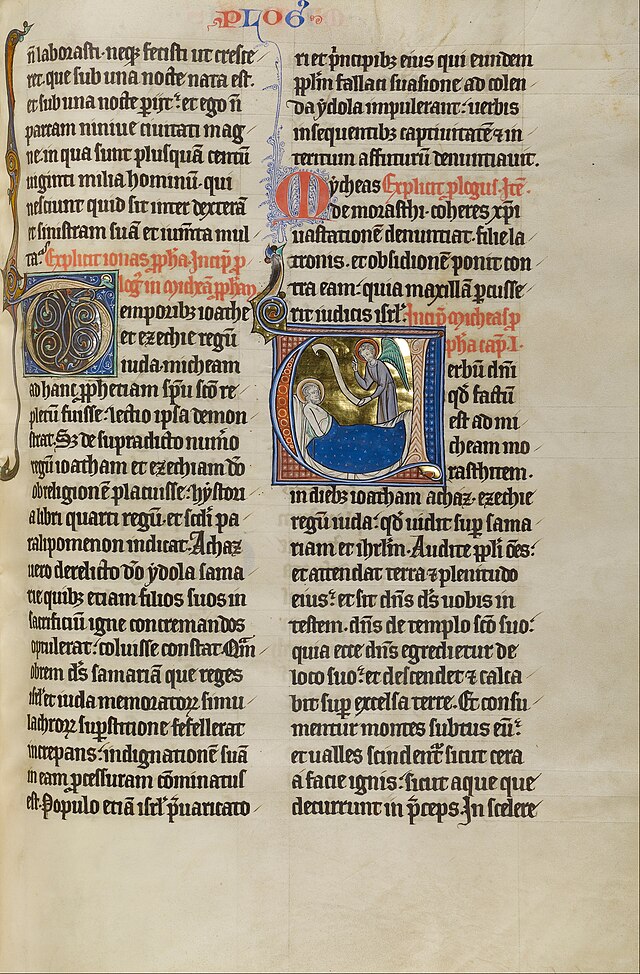 PLOG'
n̄ laborasti· neq; fecisti ut cresce
ret· que sub una nocte nata est·
et sub una nocte p̄ijt· et ego n̄
parcam niniue ciuitati mag
ne in qua sunt plusquā centū
uiginti milia hominū· qui
nesciunt quid sit inter dexterā
et sinistram suā et iumēta mul
ta· Explicit ionas ꝓpha· Incip̄ p̄
log' in mycheā ꝓpham
Temporibȝ ioathe
et ezechie regū
iuda· micheam
ad hanc ꝓphetiam sp̄u sc̄o re
pletū fuisse· lectio ipsa demon
strat· Sȝ de supradicto num̄o
regū ioatham et ezechiam d̄o
ob religionē placuisse· hystori
a libri quarti regū· et sc̄di pa
ralipomenon indicat· Achaz
uero derelicto d̄o ydola sama
rie quibȝ etiam filios suos in
sacrificiū igne concremandos
optulerat· coluisse constat· Qm̄
obrem d̄s samariā que reges
isrl' et iuda memoratoꝝ simu
lachroꝝ sup̄stitione fefellerat
increpans· indignationē suā
in eam p̄cessuram cōminatus
est· Populo etiā isrl' p̄uaricato
ri et p̄ncipibȝ eius qui eundem
pp̄lm fallaci suasione ad colen
da ydola impulerant· uerbis
insequentibȝ captiuitatē et in
teritum affuturū denuntiauit.
Mycheas Explicit p̄logus· Itē·
de morasthi· coheres xp̄i
uastationē denuntiat· filie la
tronis· et obsidionē ponit con
tra eam· quia maxillā p̄cusse
rit iudicis isrl'· Incip̄ Mycheas p̄
pha cap̄ I·
Verbū dn̄i
qd̄ factū
est ad mi
cheam mo
rasthitem·
in diebȝ ioatham achaz· ezechie
regū iuda· qd̄ uidit sup̄ sama
riam et ihrl̄m· Audite pp̄li om̄s·
et attendat terra ⁊ plenitudo
eius· et sit dn̄s d̄s uobis in
testem· dn̄s de templo sc̄o suo·
quia ecce dn̄s egredietur de
loco suo· et descendet ⁊ calca
bit sup̄ excelsa terre· Et consu
mentur montes subtus eū·
et ualles scindent̄ sicut cera
a facie ignis· sicut aque que
decurrunt in p̄ceps· In scelere